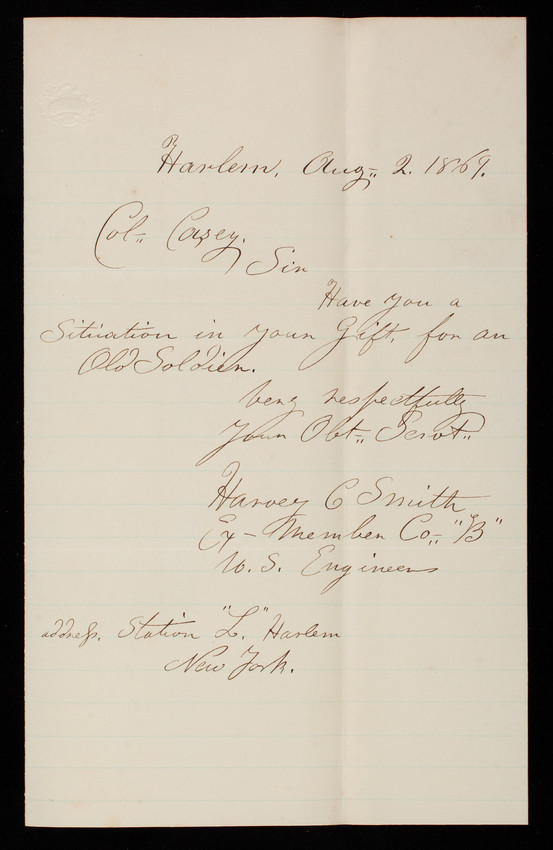 Harlem, Aug,, 2. 1869.
Col,, Casey.
Sir
Have you a
Situation in your Gift, for an
Old Soldier.
very respectfully
your Obt,, Servt,,
Harvey C Smith
Ex-Member Co,, "B"
U. S. Engineers
address, Station "L." Harlem
New York.